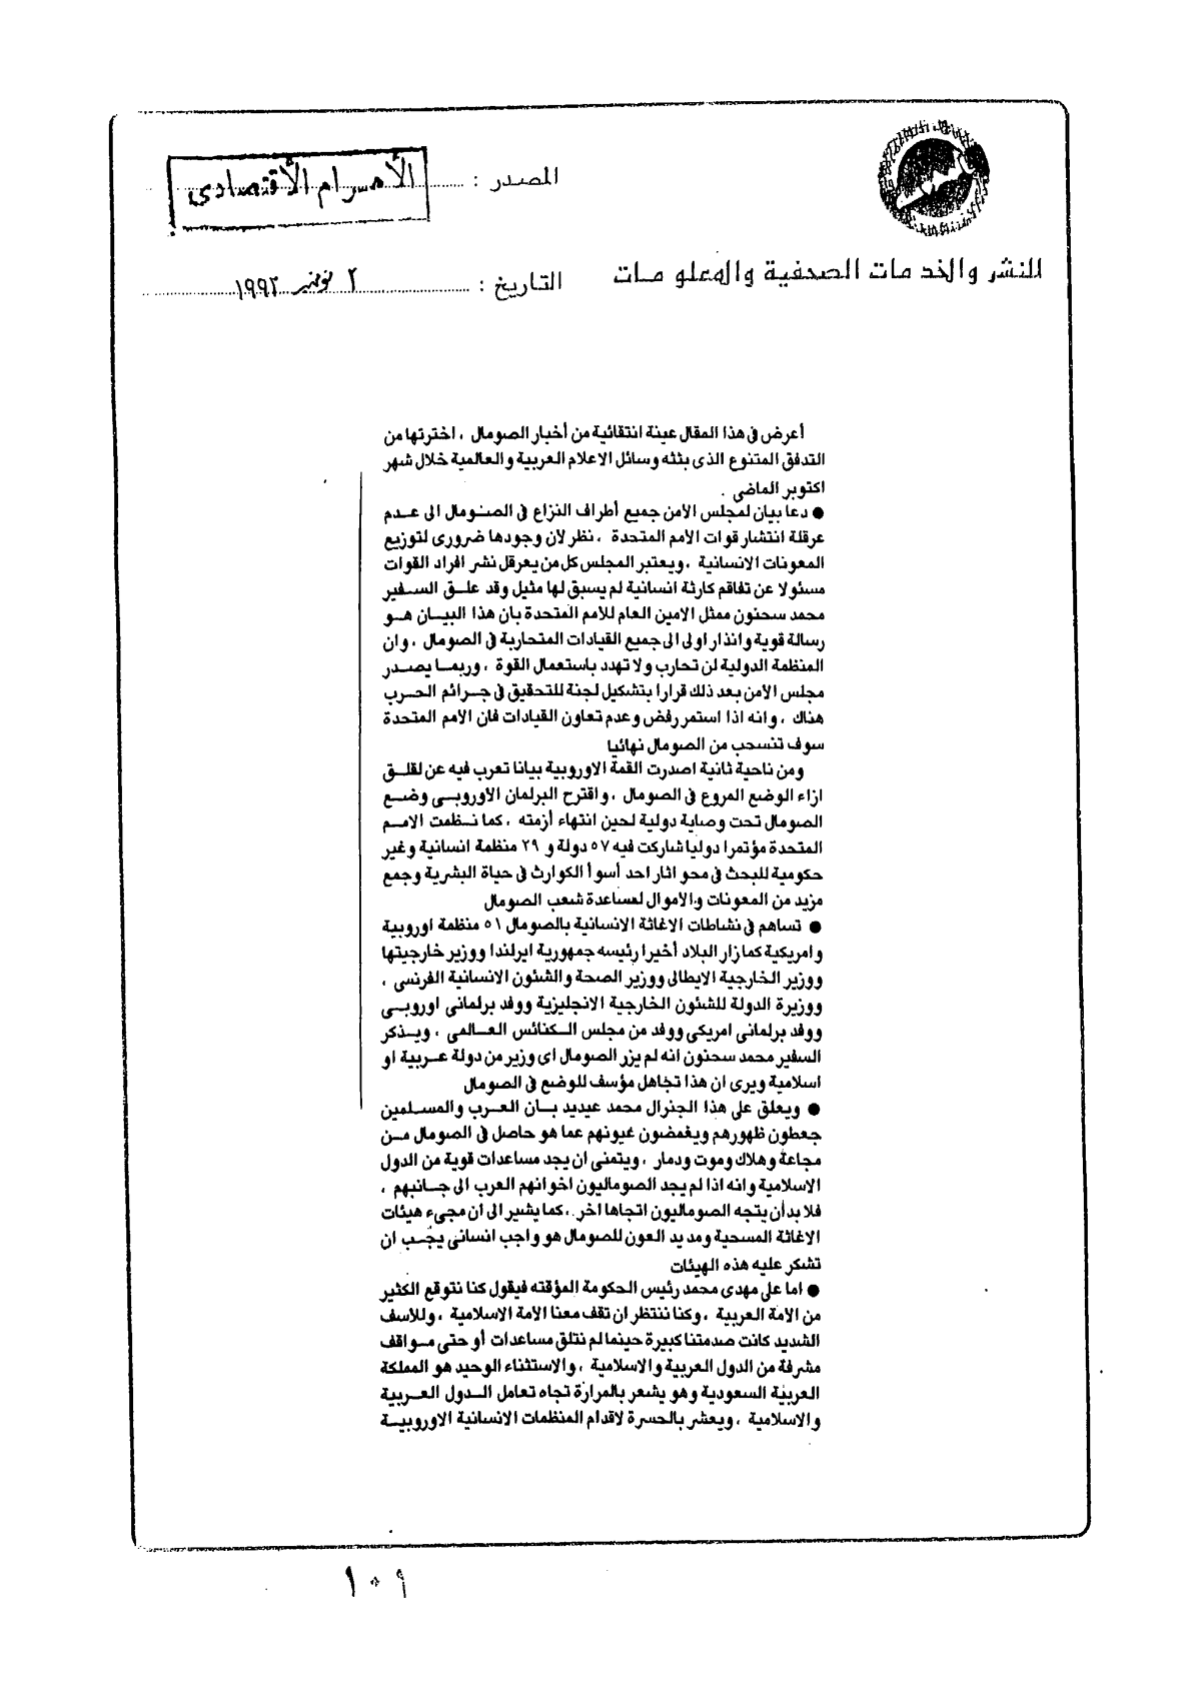 المصدر : الأهرام الأقتصادى
للنشر والخدمات الصحفية والمعلومات
التاريخ : ٢ نوفمبر ١٩٩٢
أعرض فى هذا المقال عينة انتقائية من أخبار الصومال ، اخترتها من
التدفق المتنوع الذى بثته وسائل الاعلام العربية والعالمية خلال شهر
اكتوبر الماضى .
● دعا بيان لمجلس الامن جميع أطراف النزاع فى الصومال الى عدم
عرقلة انتشار قوات الأمم المتحدة ، نظر لأن وجودها ضرورى لتوزيع
المعونات الانسانية ، ويعتبر المجلس كل من يعرقل نشر افراد القوات
مسئولا عن تفاقم كارثة انسانية لم يسبق لها مثيل وقد علق السفير
محمد سحنون ممثل الامين العام للأمم المتحدة بان هذا البيان هو
رسالة قوية وانذار اولى الى جميع القيادات المتحاربة فى الصومال ، وان
المنظمة الدولية لن تحارب ولا تهدد باستعمال القوة ، وربما يصدر
مجلس الامن بعد ذلك قرارا بتشكيل لجنة للتحقيق فى جرائم الحرب
هناك ، وانه اذا استمر رفض وعدم تعاون القيادات فان الأمم المتحدة
سوف تنسحب من الصومال نهائيا
ومن ناحية ثانية اصدرت القمة الاوروبية بيانا تعرب فيه عن لقلق
ازاء الوضع المروع فى الصومال ، واقترح البرلمان الأوروبى وضع
الصومال تحت وصاية دولية لحين انتهاء أزمته ، كما نظمت الامم
المتحدة مؤتمرا دوليا شاركت فيه ٥٧ دولة و ٢٩ منظمة انسانية وغير
حكومية للبحث فى محو اثار احد أسوأ الكوارث فى حياة البشرية وجمع
مزيد من المعونات والاموال لمساعدة شعب الصومال
● تساهم فى نشاطات الاغاثة الانسانية بالصومال ٥١ منظمة اوروبية
وامريكية كما زار البلاد أخيرا رئيسه جمهورية ايرلندا ووزير خارجيتها
ووزير الخارجية الايطالى ووزير الصحة والشئون الانسانية الفرنسى ،
ووزيرة الدولة للشئون الخارجية الانجليزية ووفد برلمانى اوروبى
ووفد برلمانى امريكى ووفد من مجلس الكنائس العالمى ، ويذكر
السفير محمد سحنون انه لم يزر الصومال اى وزير من دولة عربية او
اسلامية ويرى ان هذا تجاهل مؤسف للوضع فى الصومال
● ويعلق على هذا الجنرال محمد عيديد بان العرب والمسلمين
جعطون ظهورهم ويغمضون عيونهم عما هو حاصل فى الصومال من
مجاعة وهلاك وموت ودمار ، ويتمنى ان يجد مساعدات قوية من الدول
الاسلامية وانه اذا لم يجد الصوماليون اخوانهم العرب الى جانبهم ،
فلا بد أن يتجه الصوماليون اتجاها اخر ، كما يشير الى ان مجىء هيئات
الاغاثة المسحية ومد يد العون للصومال هو واجب انسانى يجب ان
تشكر عليه هذه الهيئات
● اما على مهدى محمد رئيس الحكومة المؤقته فيقول كنا نتوقع الكثير
من الأمة العربية ، وكنا ننتظر ان تقف معنا الامة الاسلامية ، وللأسف
الشديد كانت صدمتنا كبيرة حينما لم نتلق مساعدات أو حتى مواقف
مشرفة من الدول العربية والاسلامية ، والاستثناء الوحيد هو المملكة
العربية السعودية وهو يشعر بالمرارة تجاه تعامل الدول العربية
والاسلامية ، ويعشر بالحسرة لاقدام المنظمات الانسانية الاوروبية
١٠٩